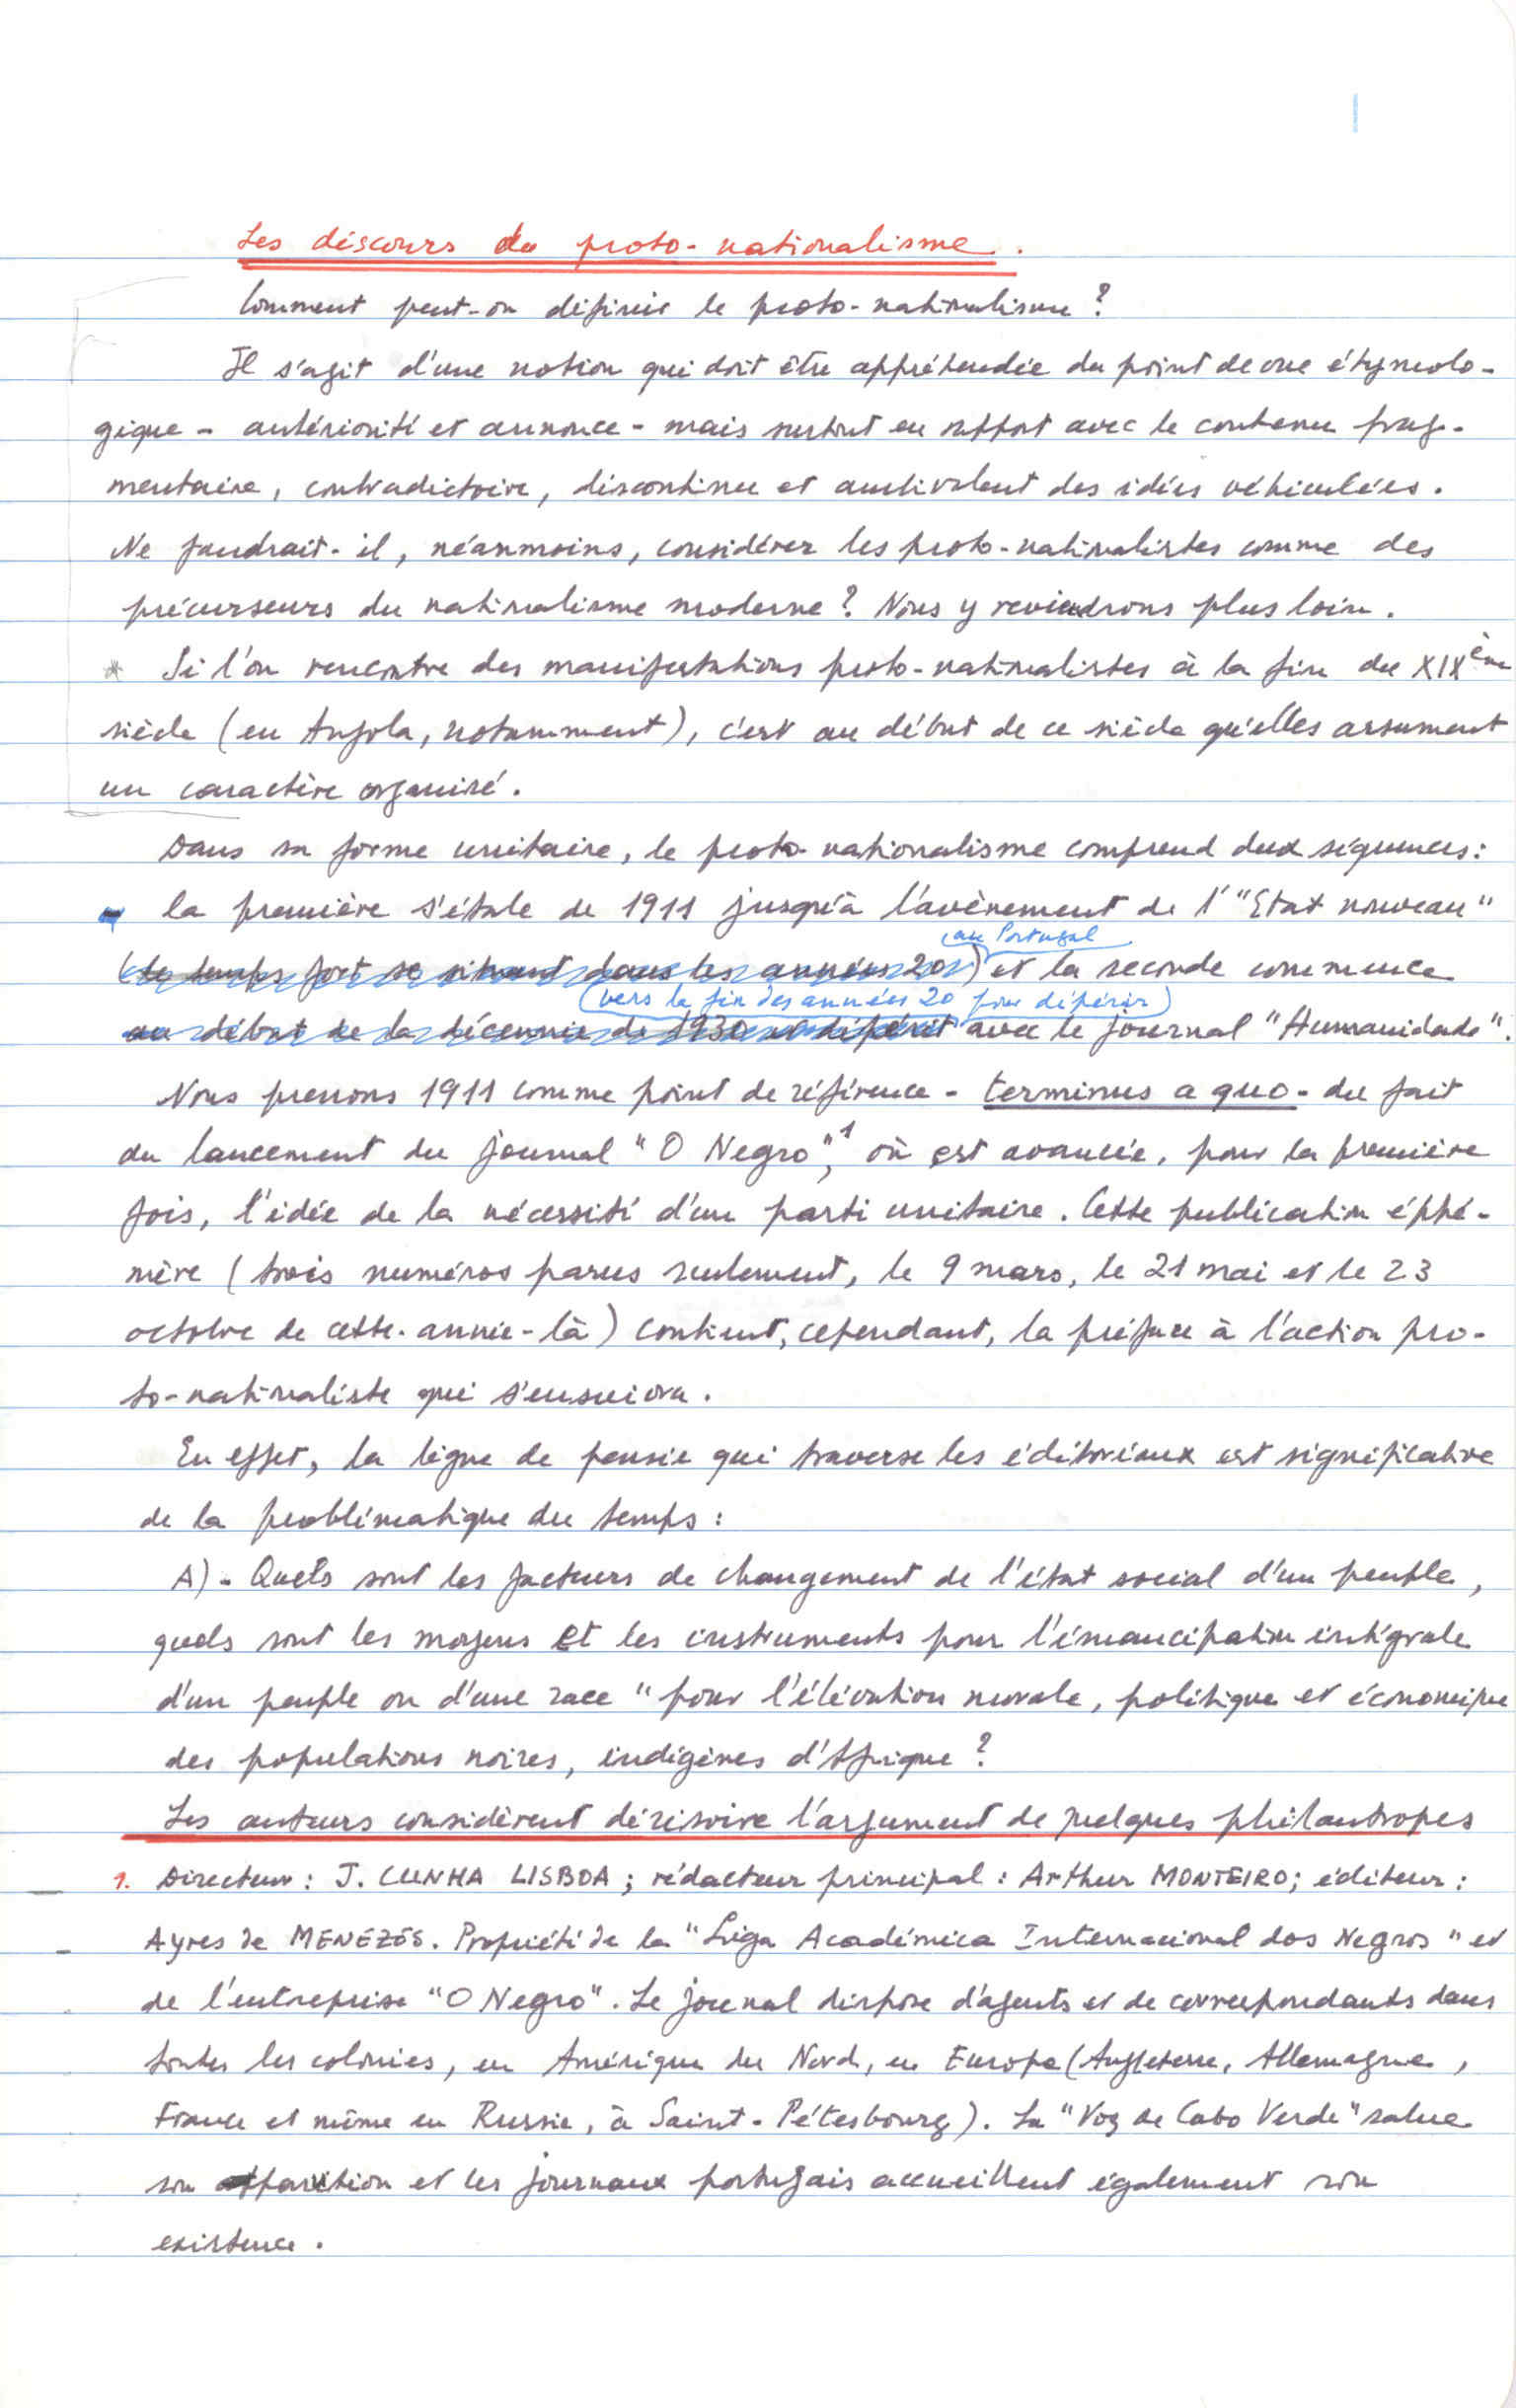 Les discours du proto-nationalisme.
Comment peut-on définir le proto-nationalisme ?
Il s'agit d'une notion qui doit être appréhendée du point de vue étymolo-
gique - antériorité et annonce - mais surtout en rapport avec le contenu frag-
mentaire, contradictoire, discontinu et ambivalent des idées véhiculées.
Ne faudrait-il, néanmoins, considérer les proto-nationalistes comme des
précurseurs du nationalisme moderne ? Nous y reviendrons plus loin.
* Si l'on rencontre des manifestations proto-nationalistes à la fin du XIXème
siècle (en Angola, notamment), c'est au début de ce siècle qu'elles assument
un caractère organisé.
Dans sa forme unitaire, le proto-nationalisme comprend deux séquences :
- la première s'étale de 1911 jusqu'à l'avènement de l'"Etat nouveau"
(au Portugal
(le temps fort se situant dans les années 20) et la seconde commence
(vers la fin des années 20 pour dépérir)
au début de la décennie de 1930 et dépérit avec le journal "Humanidade".
Nous prenons 1911 comme point de référence - terminus a quo - du fait
du lancement du journal "O Negro",1 où est avancée, pour la première
fois, l'idée de la nécessité d'un parti unitaire. Cette publication éphé-
mère (trois numéros parus seulement, le 9 mars, le 21 mai et le 23
octobre de cette-année-là) contient, cependant, la préface à l'action pro-
to-nationaliste qui s'ensuivra.
En effet, la ligne de pensée qui traverse les éditoriaux est significative
de la problématique du temps :
A) - Quels sont les facteurs de changement de l'état social d'un peuple,
quels sont les moyens et les instruments pour l'émancipation intégrale
d'un peuple ou d'une race "pour l'élévation morale, politique et économique
des populations noires, indigènes d'Afrique ?
Les auteurs considèrent dérisoire l'argument de quelques philantropes
1. Directeur : J. CUNHA LISBOA ; rédacteur principal : Arthur MONTEIRO ; éditeur :
Ayres de MENEZES. Propriété de la "Liga Académica Internacional dos Negros" et
de l'entreprise "O Negro". Le journal dispose d'agents et de correspondants dans
toutes les colonies, en Amérique du Nord, en Europe (Angleterre, Allemagne,
France et même en Russie, à Saint-Pétesbourg). La "Voz de Cabo Verde" salue
son apparition et les journaux portugais accueillent également son
existence.